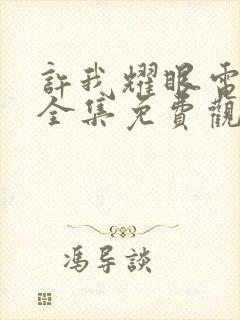 許我耀眼電
全集免費觀
馮导談